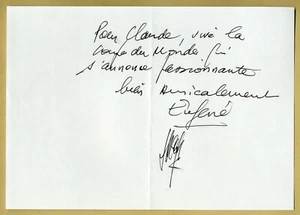 Pour Claude, vive la
coupe du Monde qui
s'annonce passionnante
bien Amicalement